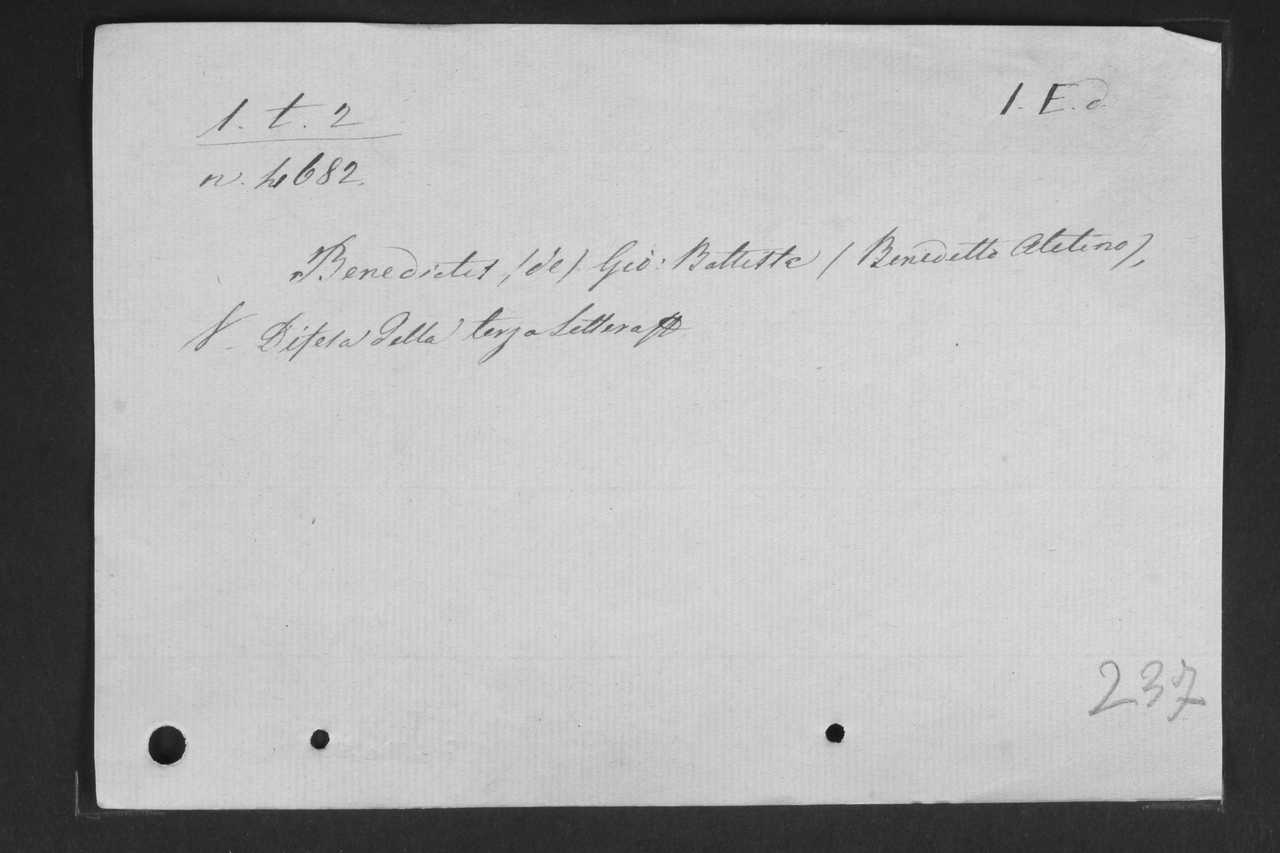 1. t. 2
I. E. d.
n. 4682.
Benedictis (de) Gio: Battista (Benedetto Aletino),
V. Difesa della terza Lettera
237